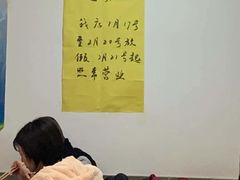 我店1月17号
至2月20号放
假，2月21号起
照常营业